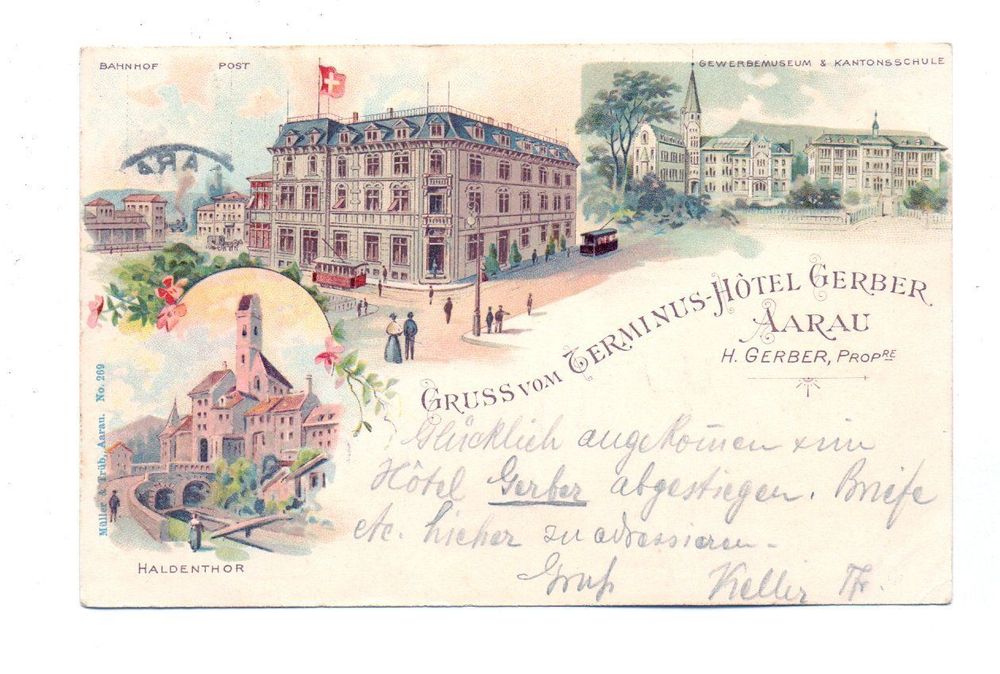 BAHNHOF POST
GEWERBEMUSEUM & KANTONSSCHULE
ARA
GRUSS VOM TERMINUS-HÔTEL GERBER
AARAU
H. GERBER, PROPRE
Müller & Trüb, Aarau. No. 269
HALDENTHOR
Glücklich angekommen & im
Hôtel Gerber abgestiegen. Briefe
etc. hieher zu adressieren.
Gruß Keller